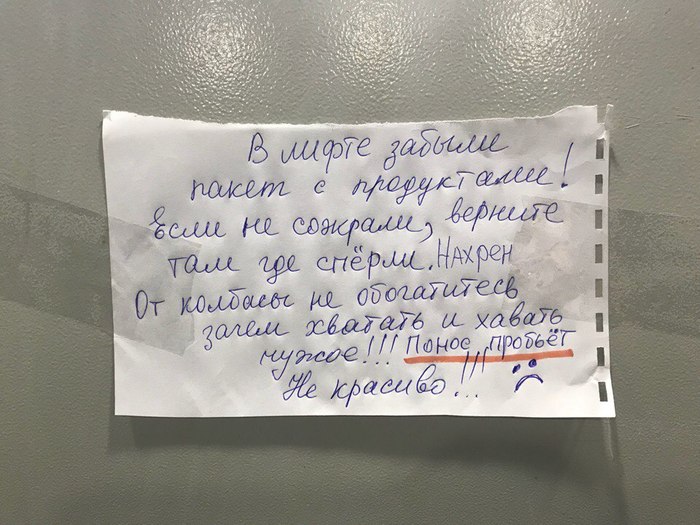 В лифте забыли
пакет с продуктами!
Если не сожрали, верните
там где спёрли. Нахрен
От колбасы не обогатитесь
зачем хватать и хавать
чужое!!! Понос пробьёт
Не красиво!!!